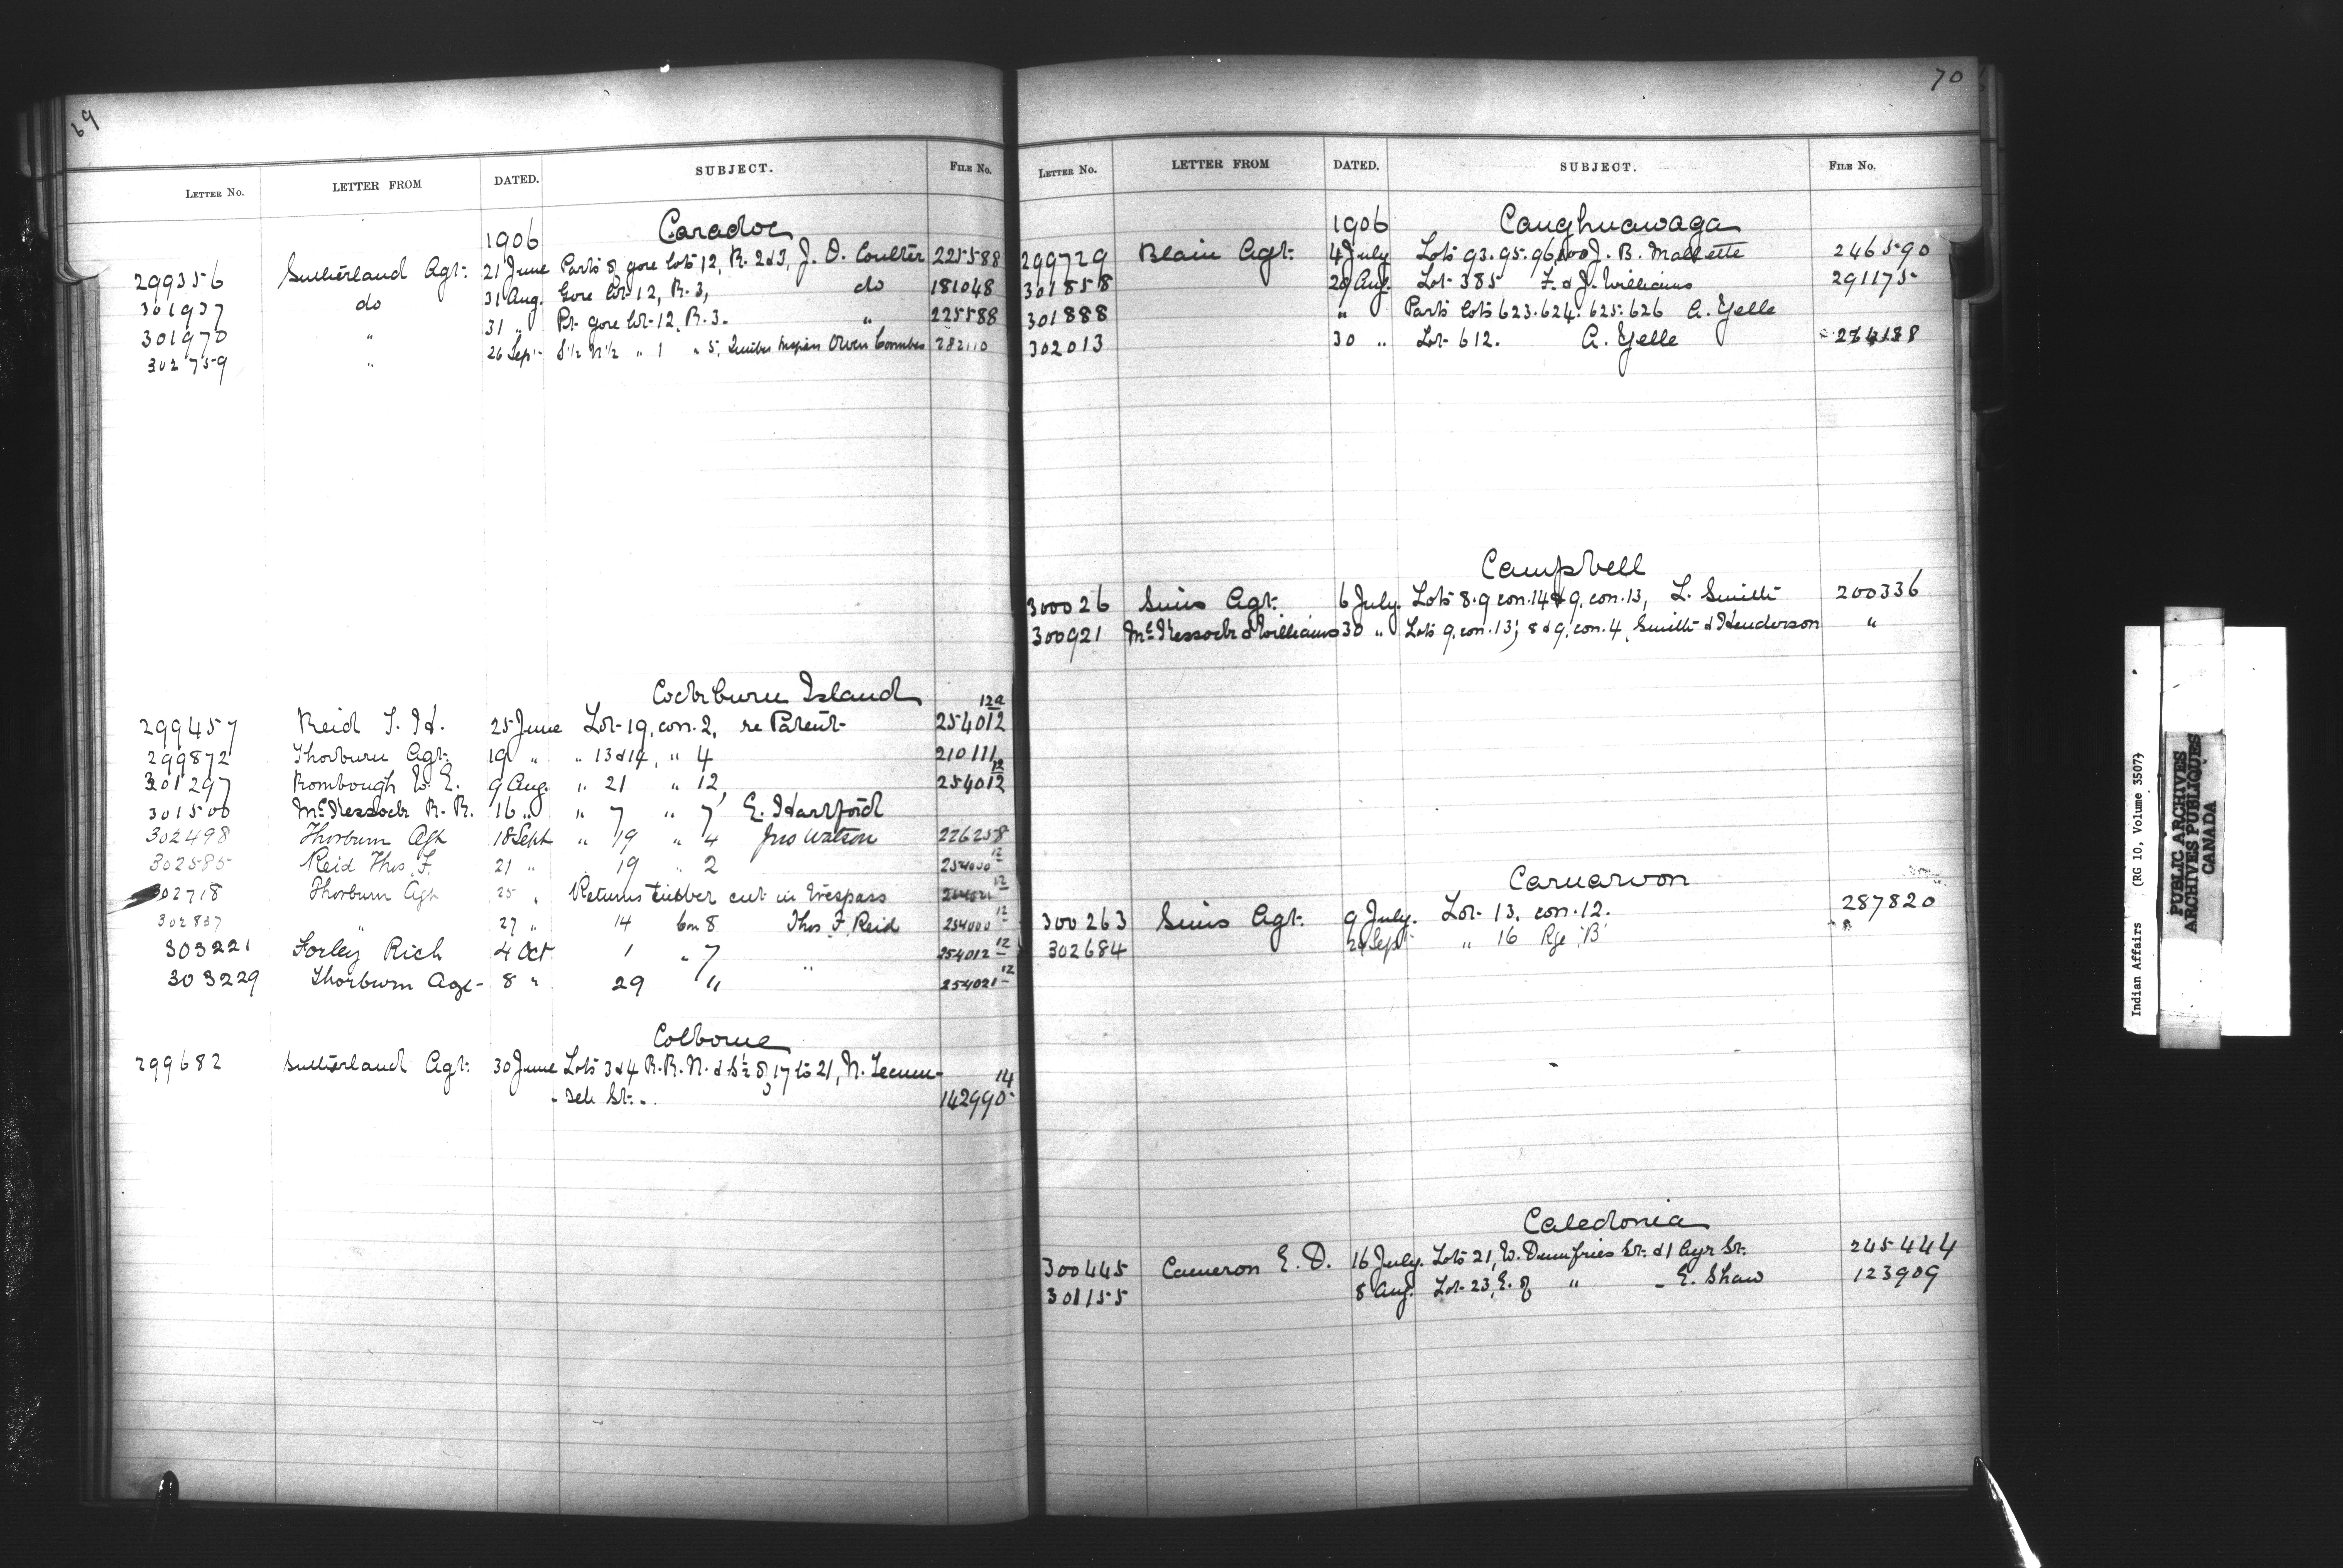 69
LETTER NO. LETTER FROM DATED. SUBJECT. FILE NO.
1906 Caradoc
299356 Sutherland Agt. 21 June Parts of gore lots 12, R. 2 & 3, J. O. Coulter 225588
301937 do 31 Aug. Gore lot 12, R. 3, do 181048
301970 " 31 " Pt. gore lot 12, R. 3. " 225588
302759 " 26 Sept S½ N½ " 1 " 5, Owen Coombes 282110
Cockburn Island
299457 Reid T. Hd. 25 June Lot 19, con. 2, re Patent 254012 12a
299872 Thorburn Agt. 19 " " 13 & 14, " 4 210111
301297 Rombough W. E. 9 Aug. " 21 " 12, 254012 12
301500 McKessock R. R. 16 " " 7 " 7 E. Hartford
302498 Thorburn Agt 18 Sept " 19 " 4 Jno Watson 226258
302585 Reid Thos. F. 21 " 19 " 2 254000 12
302718 Thorburn Agt 25 " Returns timber cut in trespass 12
302837 " 27 " 14 Con 8 Thos. F. Reid 254000 12
303221 Forley Rich 4 Oct 1 " 7 " 254012 12
303229 Thorburn Agt 8 " 29 " 254021 12
Colborne
299682 Sutherland Agt. 30 June Lots 3 & 4 R. R. N. & S½ of 17 to 21, N. Tecum-
-seh St. 142990 14
70
LETTER NO. LETTER FROM DATED. SUBJECT. FILE NO.
1906 Caughnawaga
299729 Blain Agt. 4 July Lots 93.95.96,100 J. B. Mallette 246590
301858 29 Aug. Lot 385 F. & J. Williams 291175
301888 " Parts lots 623.624.625.626 A. Yelle
302013 30 " Lot 612. A. Yelle
Campbell
300026 Sims Agt. 6 July. Lots 8.9 con. 14 & 9, con. 13, L. Smith 200336
300921 McKessock & Williams 30 " Lots 9, con. 13; 8 & 9, con. 4, Smith & Henderson "
Carnarvon
300263 Sims Agt. 9 July. Lot 13, con. 12. 287820
302684 24 Sept " 16 Rge 'B' "
Caledonia
300445 Cameron E. D. 16 July. Lots 21, W. Dumfries St. & 1 Ayr St. 245444
301155 8 Aug. Lot 23, E. of " - E. Shaw 123909
Indian Affairs (RG 10, Volume 3507)
PUBLIC ARCHIVES
ARCHIVES PUBLIQUES
CANADA